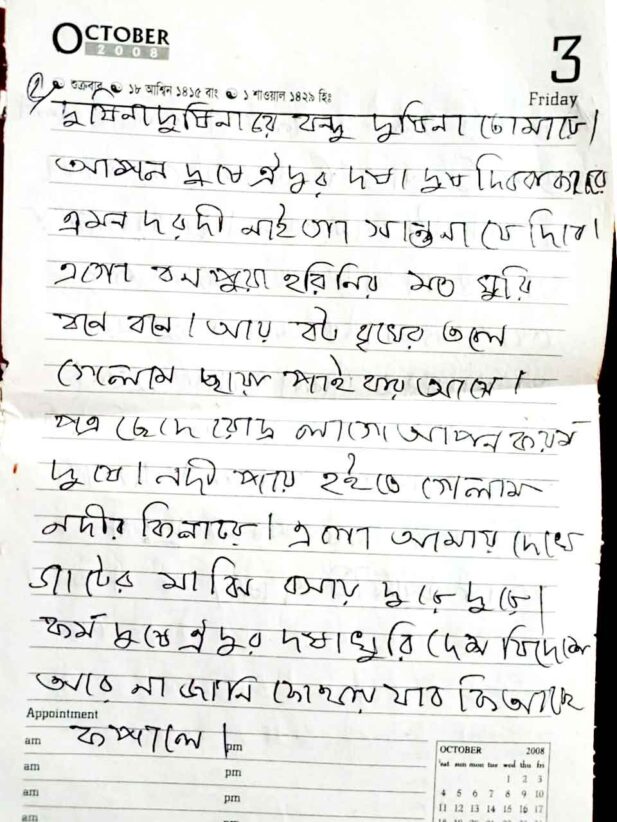 OCTOBER
2008
3
Friday
শুক্রবার ১৮ আশ্বিন ১৪১৫ বাং ১ শাওয়াল ১৪২৯ হিঃ
১
দুষিনা দুষিনারে বন্ধু দুষিনা তোমারে।
আপন দুষে ঐ দুর দষা। দুষ দিব কাহারে
এমন দরদী নাই গো সান্তনা যে দিবে।
এগো বন পুুয়া হরিনির মত ঘুরি
বনে বনে। আয় বট বৃখের তলে
গেলাম ছায়া পাই বার আসে।
পত্র ছেদে রোদ্র লাগে আপন কর্ম
দুষে। নদী পার হইতে গেলাম
নদীর কিনারে। এগো আমায় দেখে
ঘাটের মাঝি বসায় দুরে দুরে।
কর্ম দুষে ঐ দুর দষা ঘুরি দেশ বিদেশে
আরে না জানি কোথায় যাব কি আছে
কপালে।
Appointment
am pm
am pm
am pm
OCTOBER 2008
sat sun mon tue wed thu fri
1 2 3
4 5 6 7 8 9 10
11 12 13 14 15 16 17